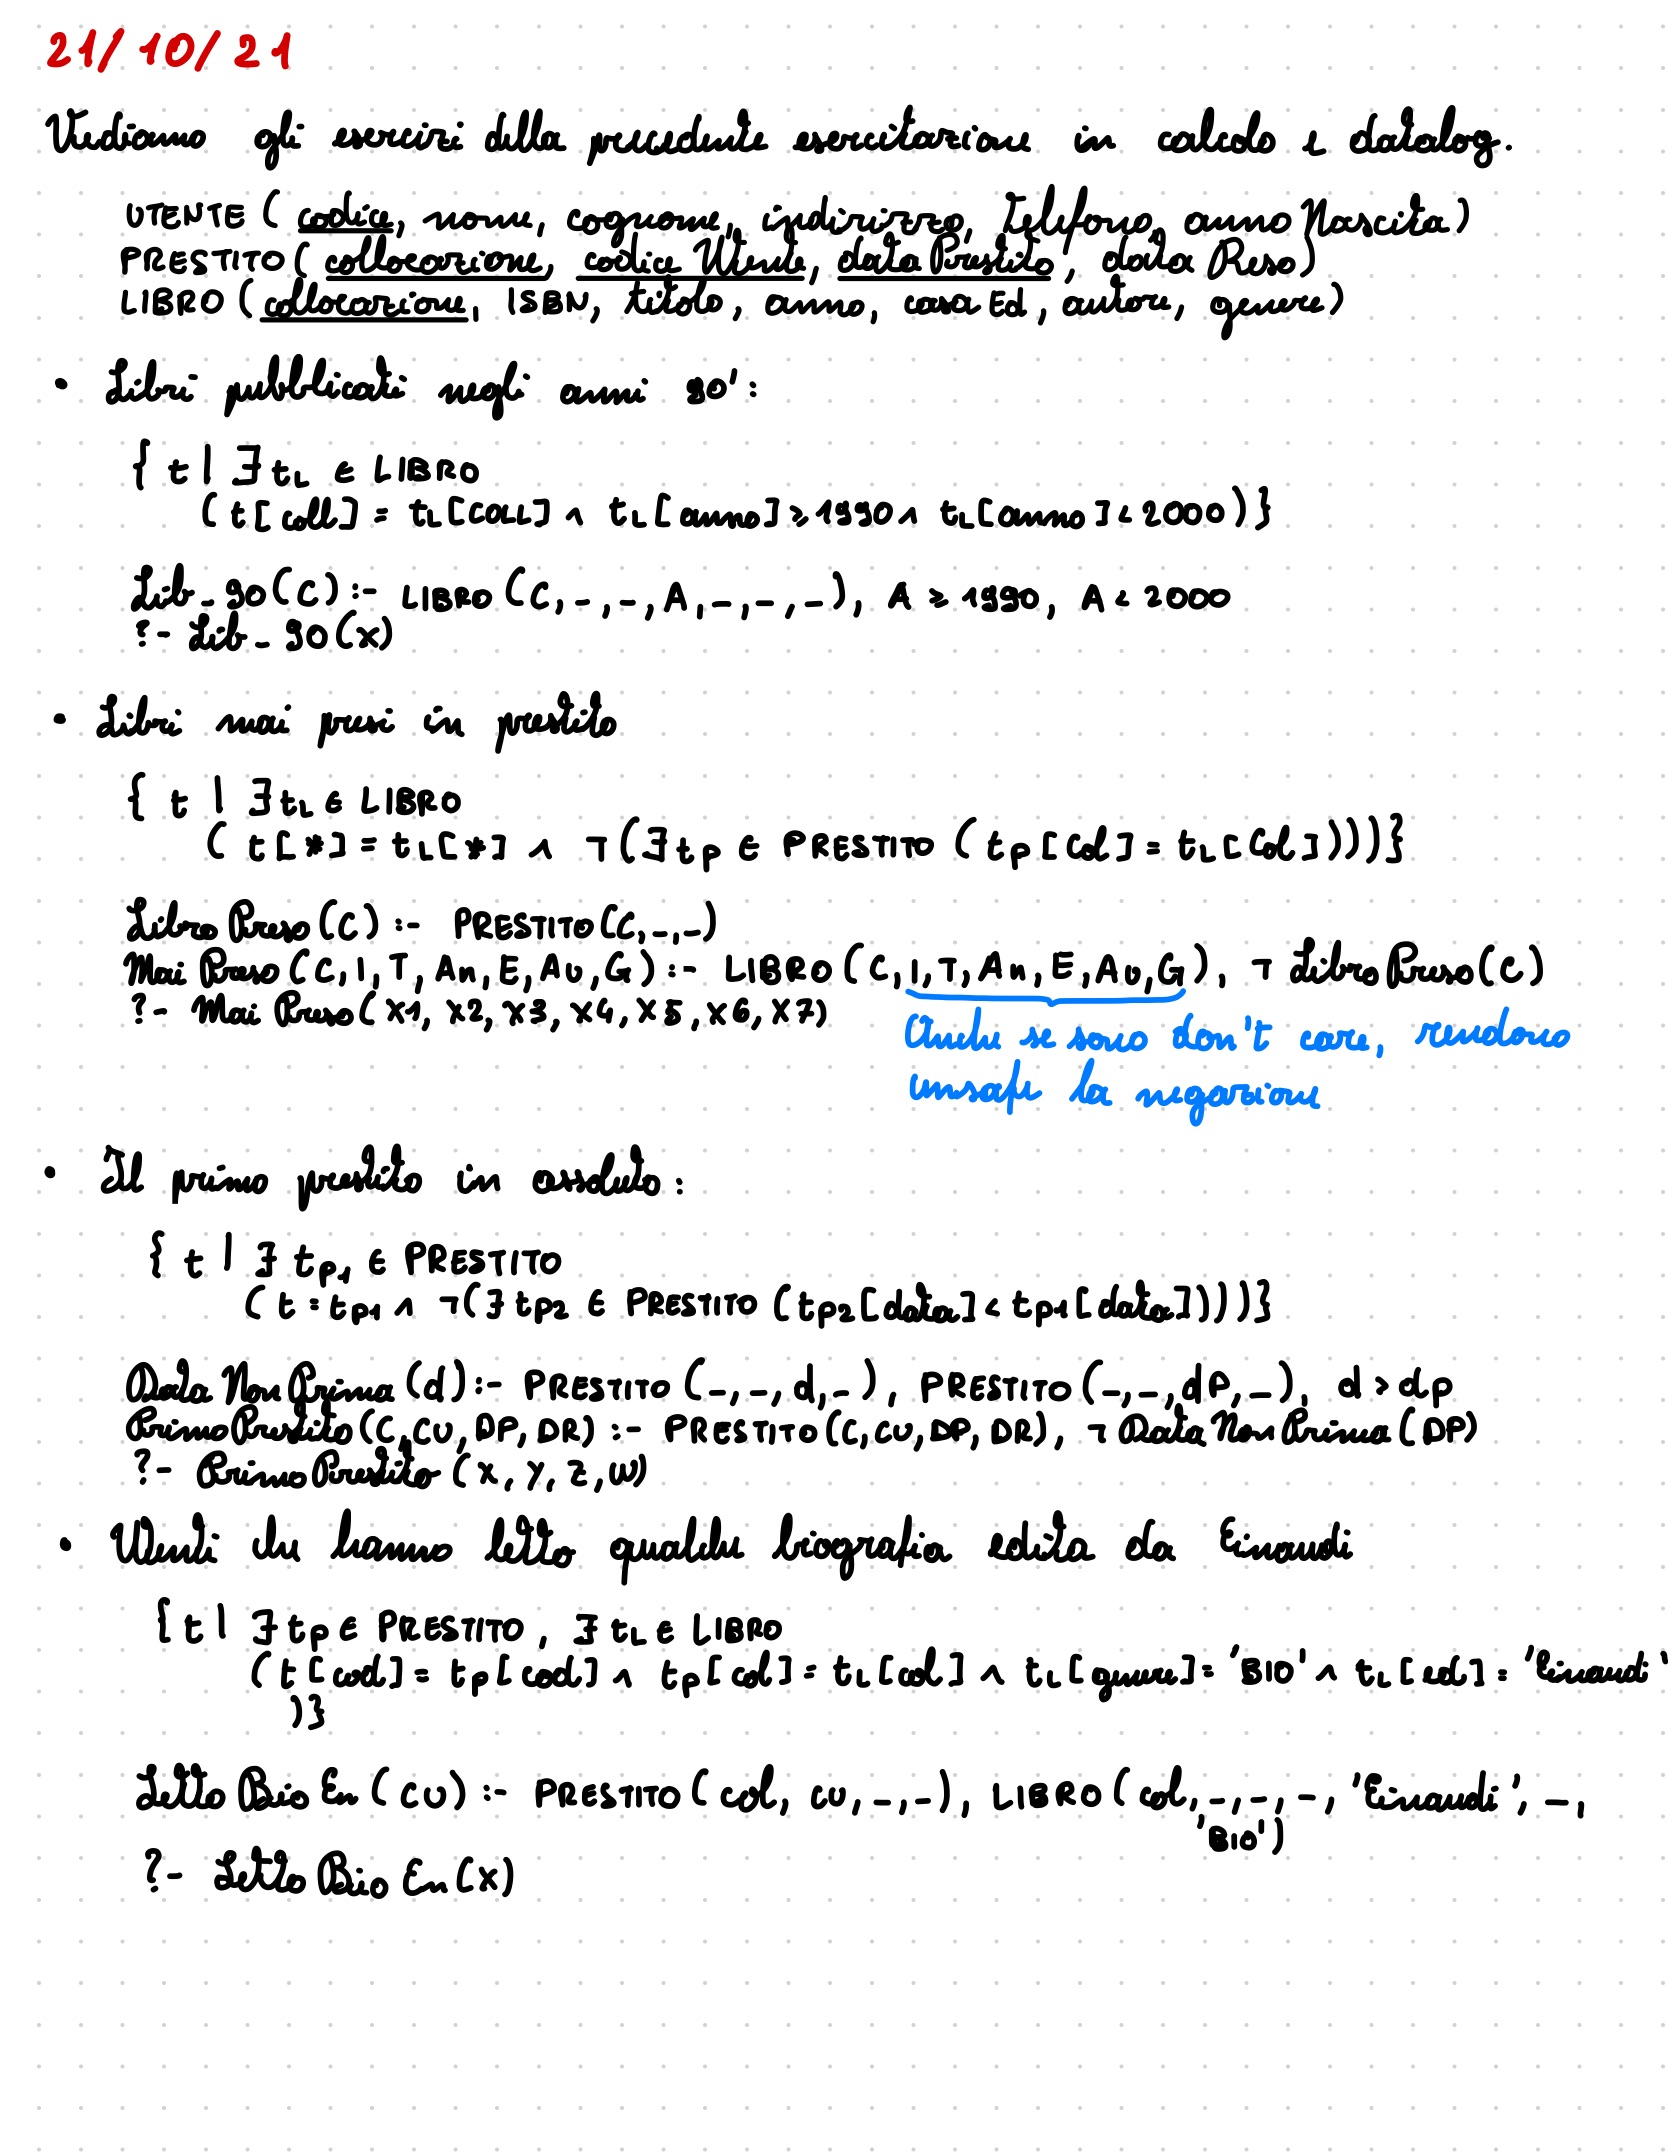 21/10/21
Vediamo gli esercizi della precedente esercitazione in calcolo e datalog.
UTENTE ( codice, nome, cognome, indirizzo, Telefono, anno Nascita)
PRESTITO ( collocazione, codice Utente, data Prestito, data Reso)
LIBRO ( collocazione, ISBN, titolo, anno, casa Ed, autore, genere)
• Libri pubblicati negli anni 90':
{ t | ∃ tL ∈ LIBRO
( t[coll] = tL[COLL] ∧ tL[anno] ≥ 1990 ∧ tL[anno] < 2000)}
Lib_90(C) :- LIBRO (C,-,-,A,-,-,-), A ≥ 1990, A < 2000
?- Lib_90(x)
• Libri mai presi in prestito
{ t | ∃ tL ∈ LIBRO
( t[*] = tL[*] ∧ ¬(∃ tp ∈ PRESTITO ( tp[Col] = tL[Col])))}
Libro Preso(C) :- PRESTITO(C,-,-)
Mai Preso(C, I, T, An, E, Au, G) :- LIBRO (C, I, T, An, E, Au, G), ¬ Libro Preso(C)
?- Mai Preso( X1, X2, X3, X4, X5, X6, X7)
Anche se sono don't care, rendono
unsafe la negazione
• Il primo prestito in assoluto:
{ t | ∃ tp1 ∈ PRESTITO
( t = tp1 ∧ ¬(∃ tp2 ∈ PRESTITO (tp2[data] < tp1[data])))}
Data Non Prima (d) :- PRESTITO (-,-,d,-), PRESTITO(-,-,dP,-), d > dp
Primo Prestito(C, CU, DP, DR) :- PRESTITO(C, CU, DP, DR), ¬ Data Non Prima (DP)
?- Primo Prestito (x, y, z, w)
• Utenti che hanno letto qualche biografia edita da Einaudi
{ t | ∃ tp ∈ PRESTITO, ∃ tL ∈ LIBRO
( t[cod] = tp[cod] ∧ tp[col] = tL[col] ∧ tL[genere] = 'BIO' ∧ tL[ed] = 'Einaudi'
)}
Letto Bio En (CU) :- PRESTITO ( col, cu,-,-), LIBRO ( col,-,-,-, 'Einaudi', -,
'BIO')
?- Letto Bio En (X)